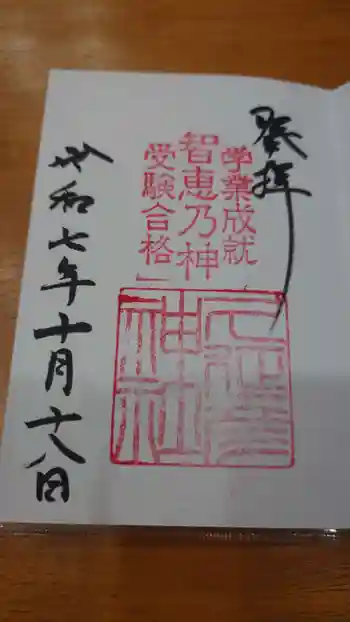 奉拝
学業成就
智恵乃神
受験合格
神社
令和七年十月十八日